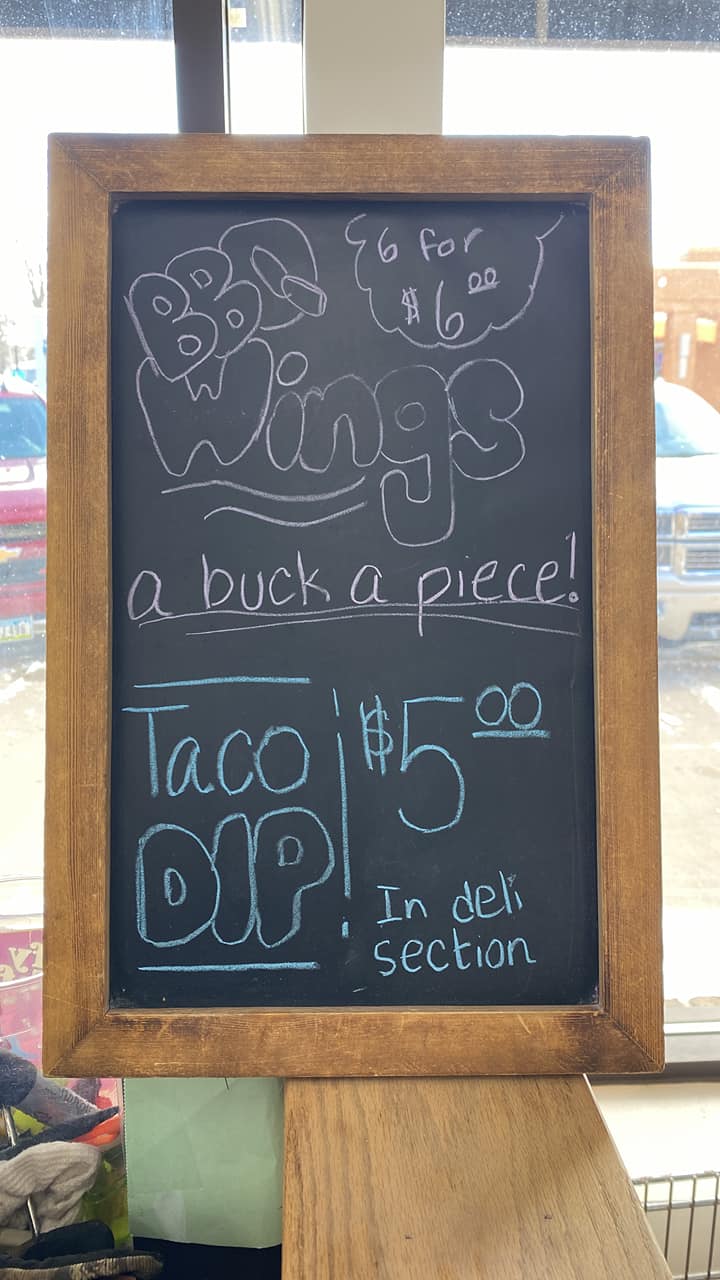 BBQ
6 for
$6.00
Wings
a buck a piece!
Taco
DIP
$5.00
In deli
section